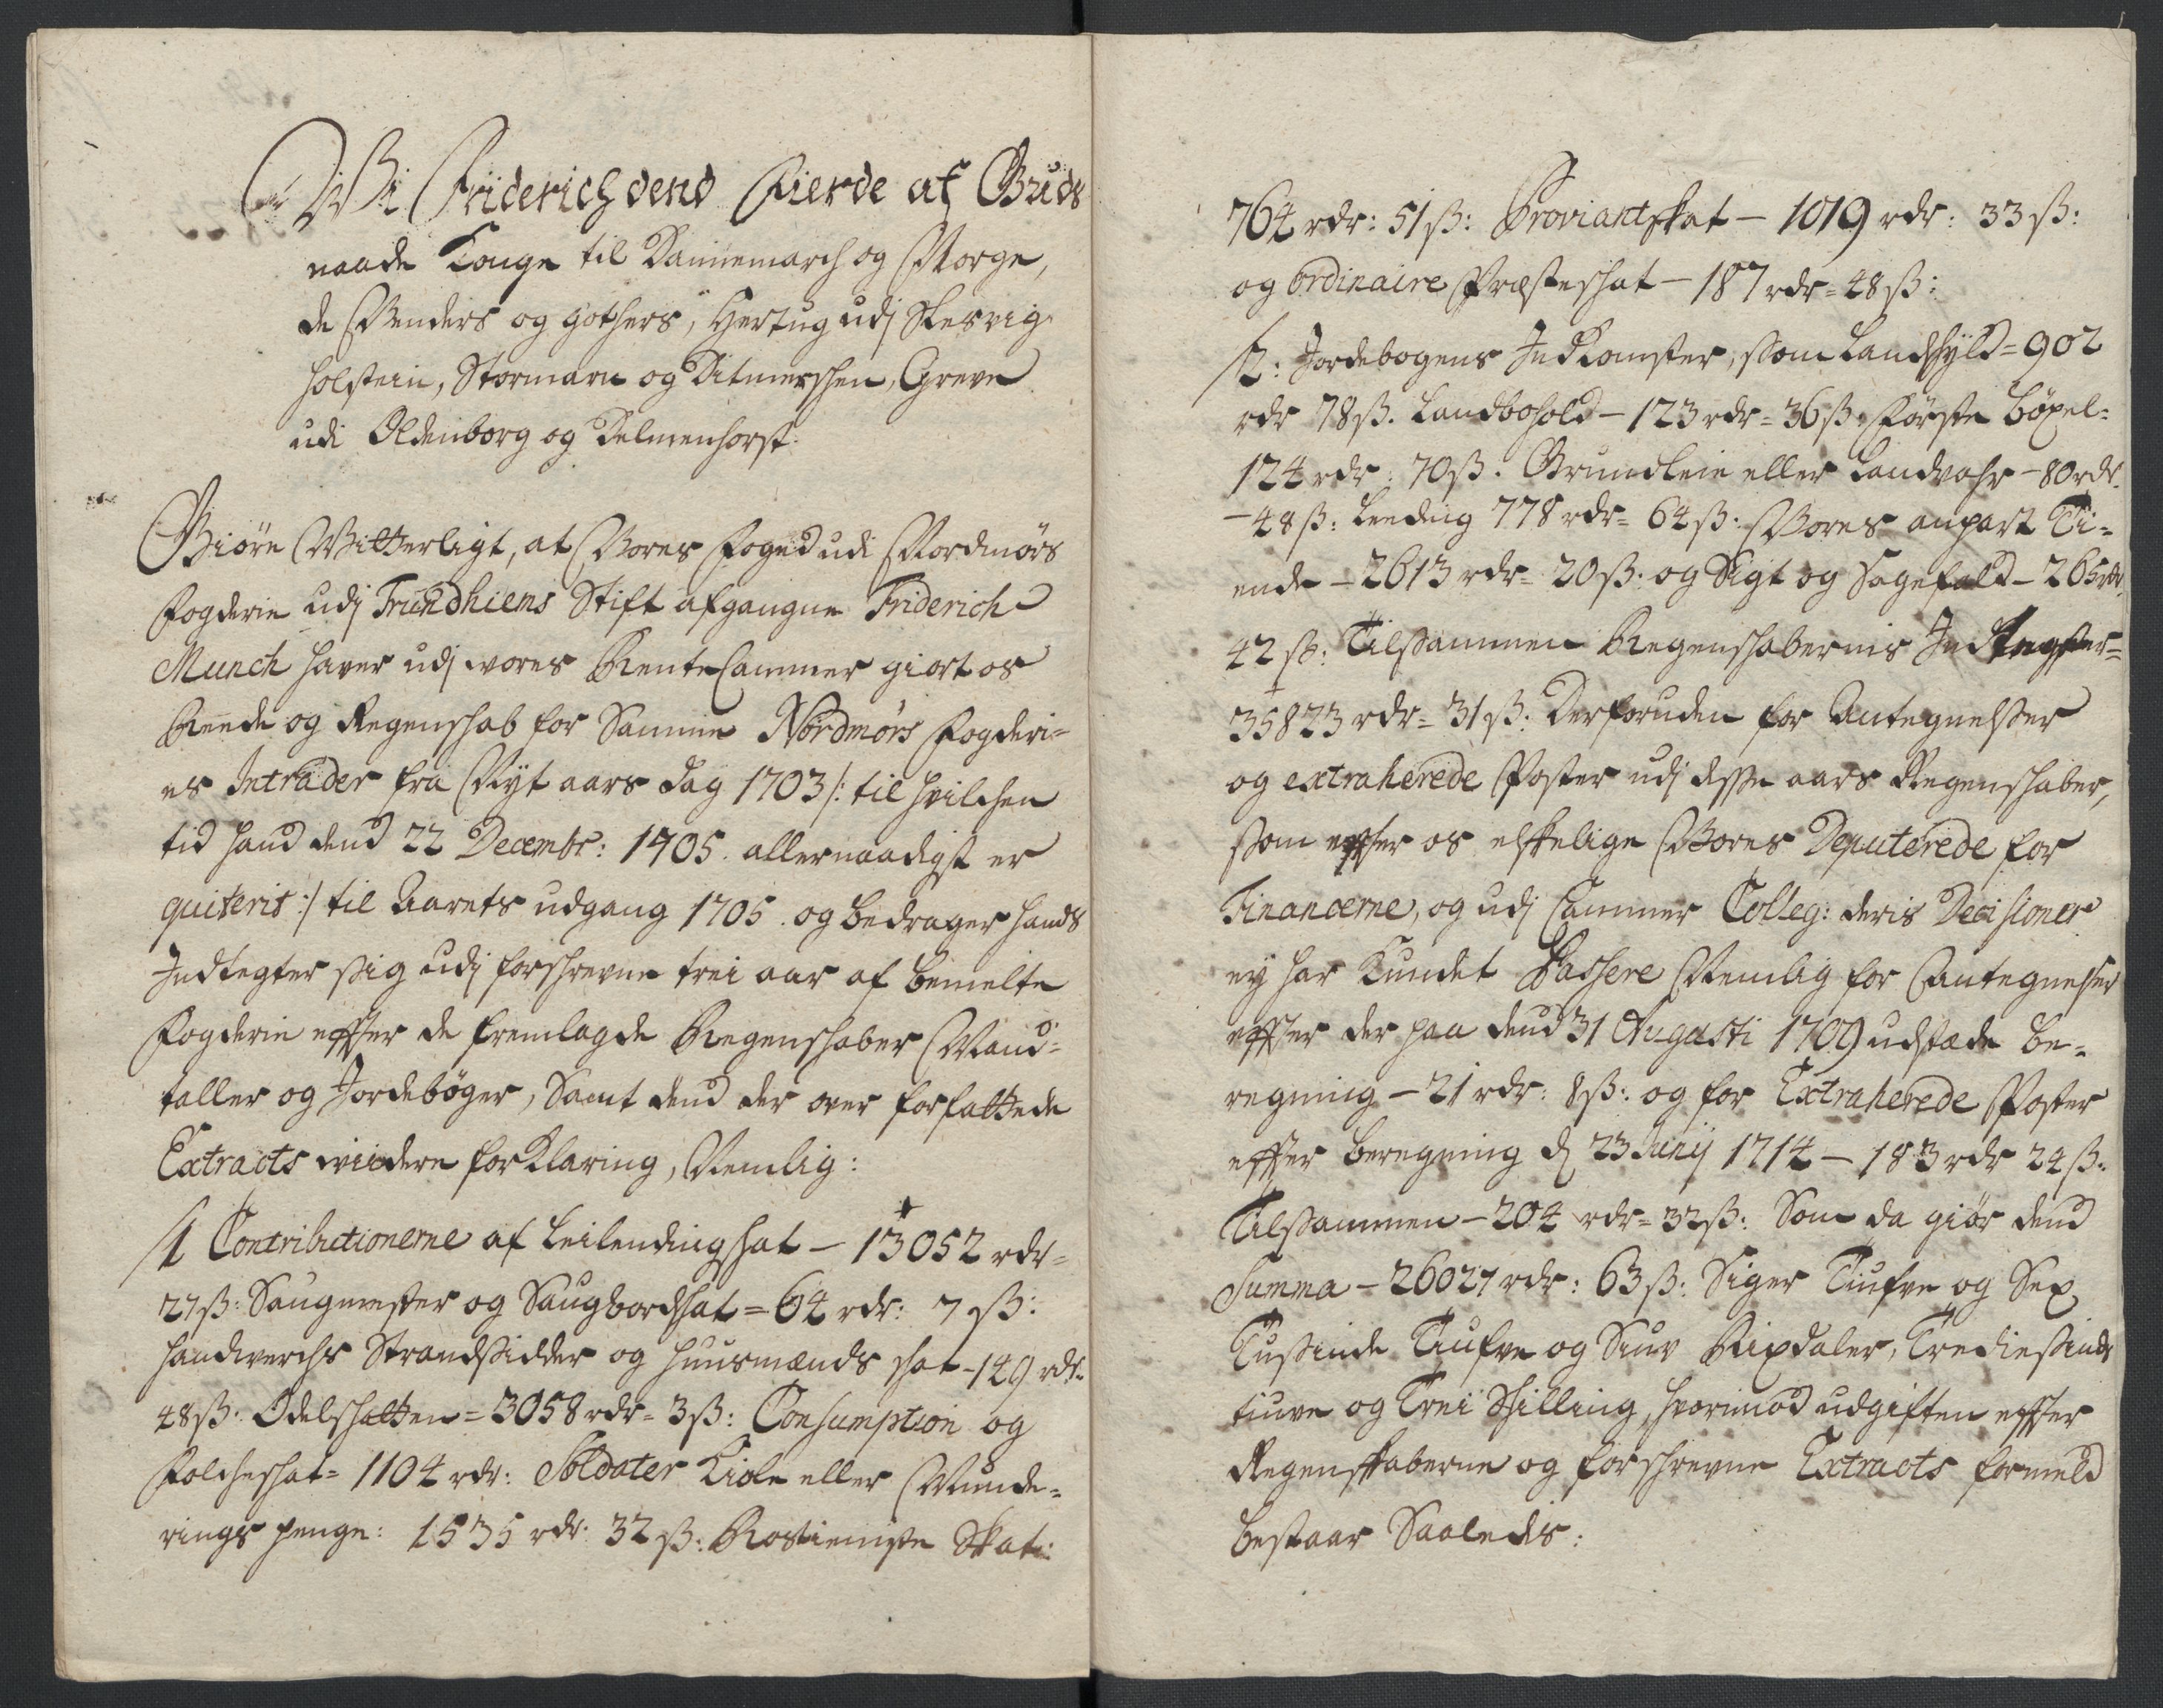 Wi Friderich dend Fierde af Guds
naade Konge til Dannemarch og Norge,
de Wenders og Gothers, Hertug udj Slesvig
Holstein, Stormarn og Ditmerschen, Greve
udi Oldenborg og Delmenhorst.
Giöre Witterligt, at Vores Foged udi Nordmörs
Fogderie udj Trundhiems Stift afgangne Friderich
Munch haver udj vores Rente Cammer giort os
Reede og Regenschab for Samme Nordmörs Fogderi-
es Intrader fra Nyt aars dag 1703 /: til hvilchen
tid hand dend 22 Decembr: 1705. allernaadigst er
quiterit :/ til Aarets udgang 1705. og bedrager hands
Indtegter sig udj forschrevne trei aar af bemelte
Fogderie effter de fremlagde Regenschaber Mand-
taller og Jordeböger, Samt dend der over forfattede
Extracts viidere forklaring, Nemlig:
/1 Contributionerne af Leilendingschat - 13052 rdr-
27 ß: Saugmester og Saugbordschat = 64 rdr: 7 ß:
Handverchs Strandsidder og Huusmænds schat - 149 rdr-
48 ß: Odelschatten = 3058 rdr= 3 ß: Consumption og
Folcheschat= 1104 rdr: Soldater Kiole eller Munde-
rings penge: 1535 rdr. 32 ß: Rostienste Skat:
764 rdr: 51 ß: Proviantskat - 1019 rdr: 33 ß:
og ordinaire Præsteschat - 187 rdr= 48 ß:
/2: Jordebogens Indkomster, som Landschyld = 902
rdr 78 ß. Landbohold - 123 rdr= 36 ß. Förste böxel=
124 rdr: 70 ß: Grundleie eller Landvahr - 80 rdr.
- 48 ß: Leeding 778 rdr= 64 ß: Vores anpart Ti-
ende - 2613 rdr= 20 ß. og Sigt og Sagefald - 265 rdr.
42 ß: Tilsammen Regenschabernis Indtegter=
35823 rdr= 31 ß: Derforuden for Antegnelser
og extraherede Poster udj desse aars Regenschaber,
som effter os elskelige Vores Deputerede for
Financerne, og udj Cammer Colleg: deris Decisioner
ey har kundet Passere Nemlig for Antegnelser
effter der paa dend 31 Augusti 1709 udstæde be-
regning - 21 rdr: 8 ß: og for Extraherede Poster
effter beregning d 23 Junij 1714 - 183 rdr 24 ß:
Tilsammen - 204 rdr= 32 ß: Som da giör dend
Summa - 26027 rdr: 63 ß: Siger Tiufve og Sex
Tusinde Tiufve og Siuv Rixdaler, Trediesinds
tiuve og Trei Skilling, hvorimod udgiften effter
Regenskaberne og forschrevne Extracts formeld
bestaar Saaledis: